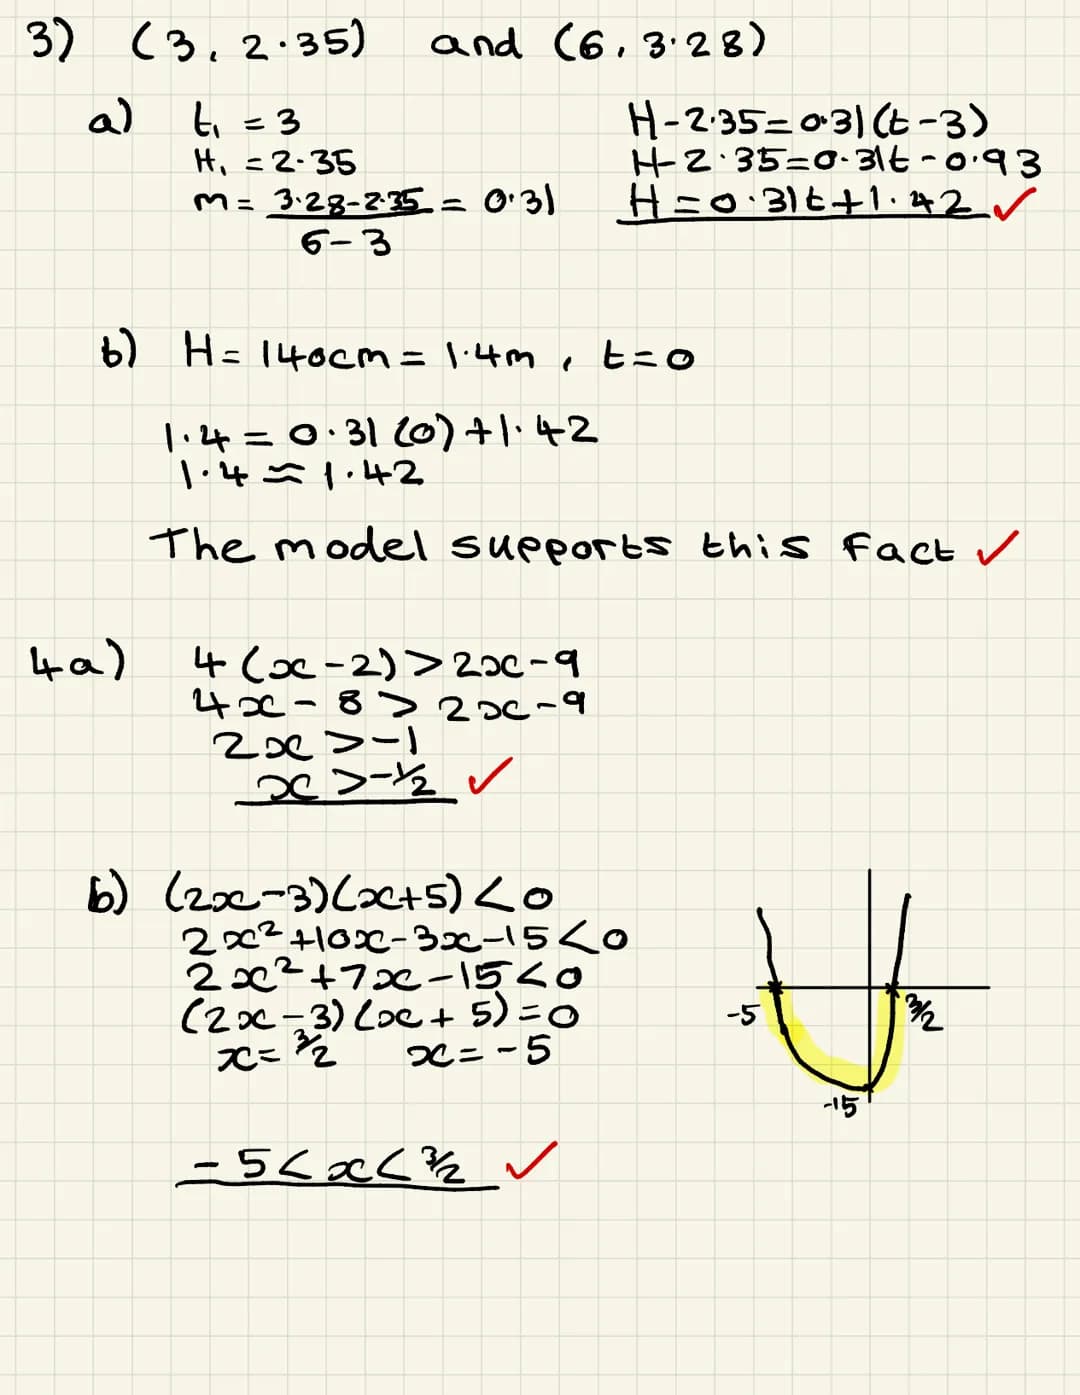 3) (3, 2·35) and (6, 3·28)
a) t₁ = 3
H₁ = 2·35
m = 3·28-2·35 = 0·31
6-3
H-2·35=0·31(t-3)
H-2·35=0·31t-0·93
H=0·31t+1·42 ✓
b) H= 140cm = 1·4m , t=0
1·4 = 0·31(0)+1·42
1·4 ≈ 1·42
The model supports this fact ✓
4a) 4(x-2)>2x-9
4x-8>2x-9
2x>-1
x>-1/2 ✓
b) (2x-3)(x+5)<0
2x²+10x-3x-15<0
2x²+7x-15<0
(2x-3)(x+5)=0
x=3/2 x=-5
-5 3/2
-15
-5<x<3/2 ✓